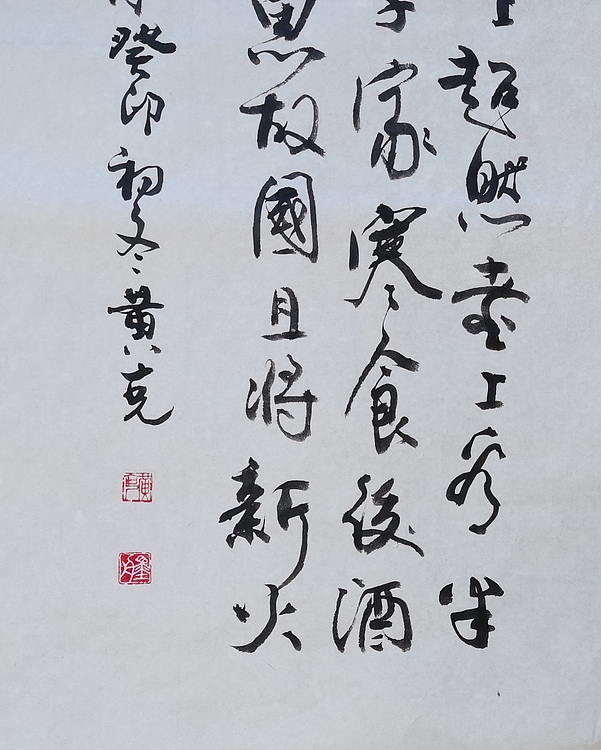 上超然臺上看半
千家寒食後酒
思故國且將新火
癸卯初冬黃克